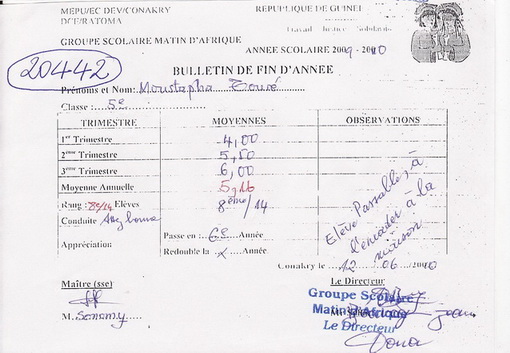 MEPU/EC DEV/CONAKRY REPUBLIQUE DE GUINEE
DCE/RATOMA Travail Justice Solidarité
GROUPE SCOLAIRE MATIN D'AFRIQUE ANNEE SCOLAIRE 2009-2010
20442
BULLETIN DE FIN D'ANNEE
Prénoms et Nom: Moustapha Touré
Classe : 5e
TRIMESTRE MOYENNES OBSERVATIONS
1er Trimestre 4,00
2ème Trimestre 5,50
3ème Trimestre 6,00
Moyenne Annuelle 5,16
Rang : 8e/14 Elèves 8ème/14
Conduite Assez bonne
Elève Passable, à
l'encadrer à la
maison
Appréciation: Passe en : 6e Année
Redouble la x Année
Conakry le 12 06 2010
Maître (sse) Le Directeur
M.
Groupe Scolaire
Matin d'Afrique
Le Directeur